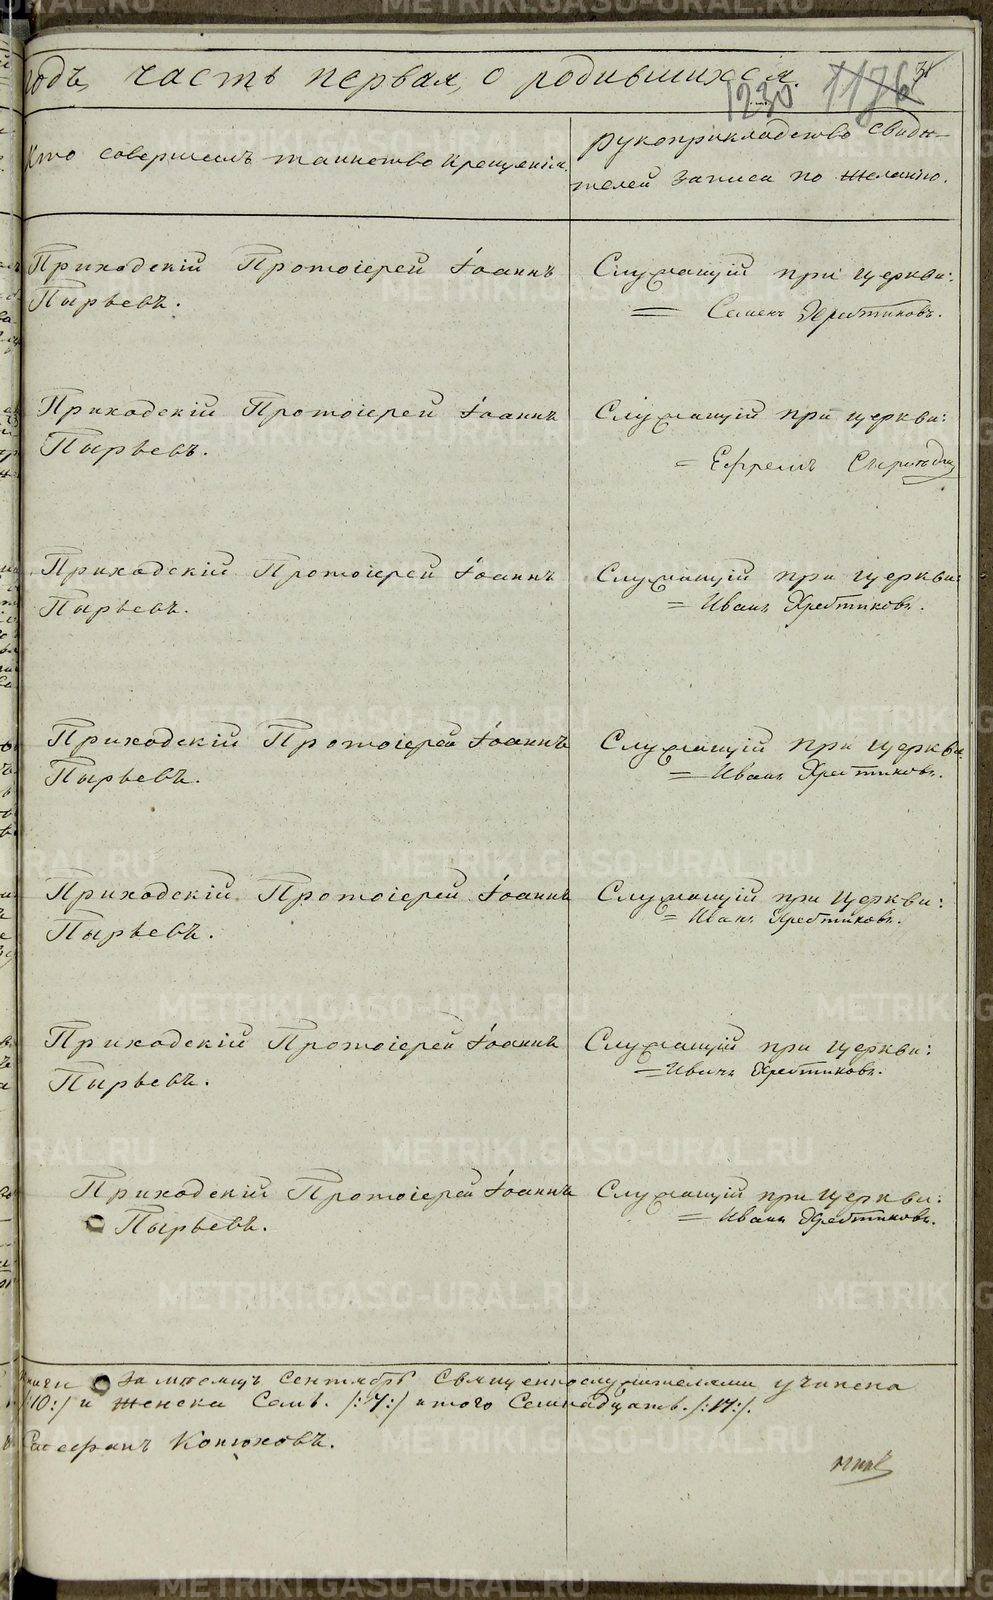 годъ, часть первая, о родившихся.
1230 1176 31
Кто совершалъ таинство крещенія.
рукоприкладство свидѣ-
телей записи по желанію.
Приходскій Протоіерей Іоаннъ
Пырьевъ.
Служащій при церкви:
= Семенъ Хребтиковъ.
Приходскій Протоіерей Іоаннъ
Пырьевъ.
Служащій при церкви:
= Ефремъ
Приходскій Протоіерей Іоаннъ
Пырьевъ.
Служащій при церкви:
= Иванъ Хребтиковъ.
Приходскій Протоіерей Іоаннъ
Пырьевъ.
Служащій при церкви:
= Иванъ Хребтиковъ.
Приходскій Протоіерей Іоаннъ
Пырьевъ.
Служащій при церкви:
= Иванъ Хребтиковъ.
Приходскій Протоіерей Іоаннъ
Пырьевъ.
Служащій при церкви:
= Иванъ Хребтиковъ.
Приходскій Протоіерей Іоаннъ
Пырьевъ.
Служащій при церкви:
= Иванъ Хребтиковъ.
книги за мѣсяцъ Сентябрь Священнослужителями учинена
/:10:/ и женска Семь. /:7:/ итого Семнадцать. /:17:/.
Стефанъ Конюховъ.
METRIKI.GASO-URAL.RU